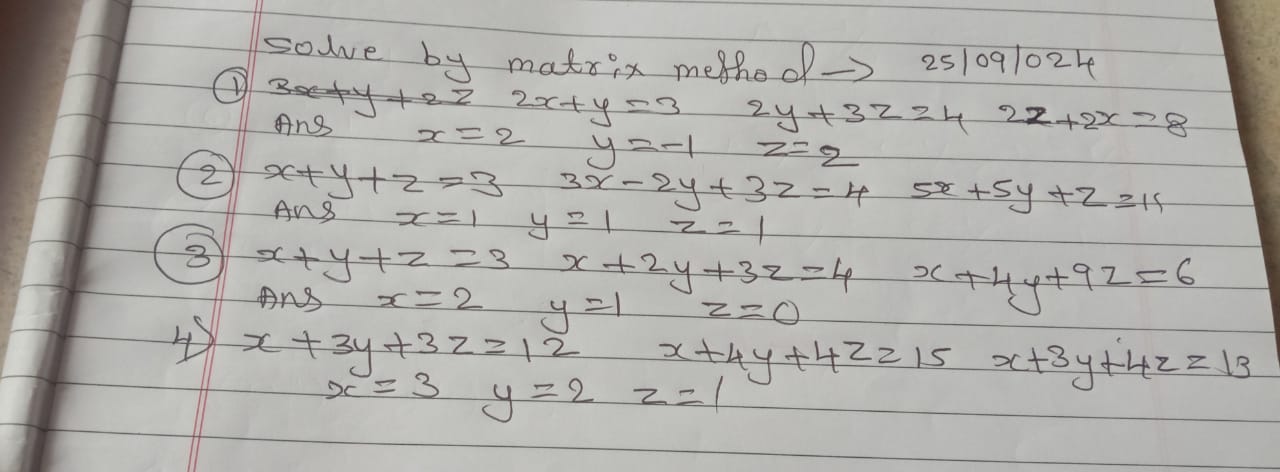 solve by matrix method → 25/09/024
① 3x+y+2z 2x+y=3 2y+3z=4 2z+2x=8
Ans x=2 y=-1 z=2
② x+y+z=3 3x-2y+3z=4 5x+5y+z=11
Ans x=1 y=1 z=1
③ x+y+z=3 x+2y+3z=4 x+4y+9z=6
Ans x=2 y=1 z=0
4) x+3y+3z=12 x+4y+4z=15 x+3y+4z=13
x=3 y=2 z=1